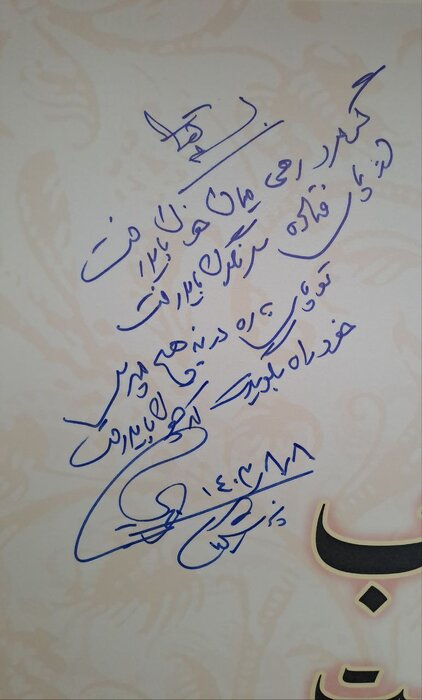 گر مرد رهی میان خون باید رفت
از پای فتاده سرنگون باید رفت
تو پای به ره در نه و هیچ مپرس
خود راه بگویدت که چون باید رفت
۱۴۰۳/۸/۸